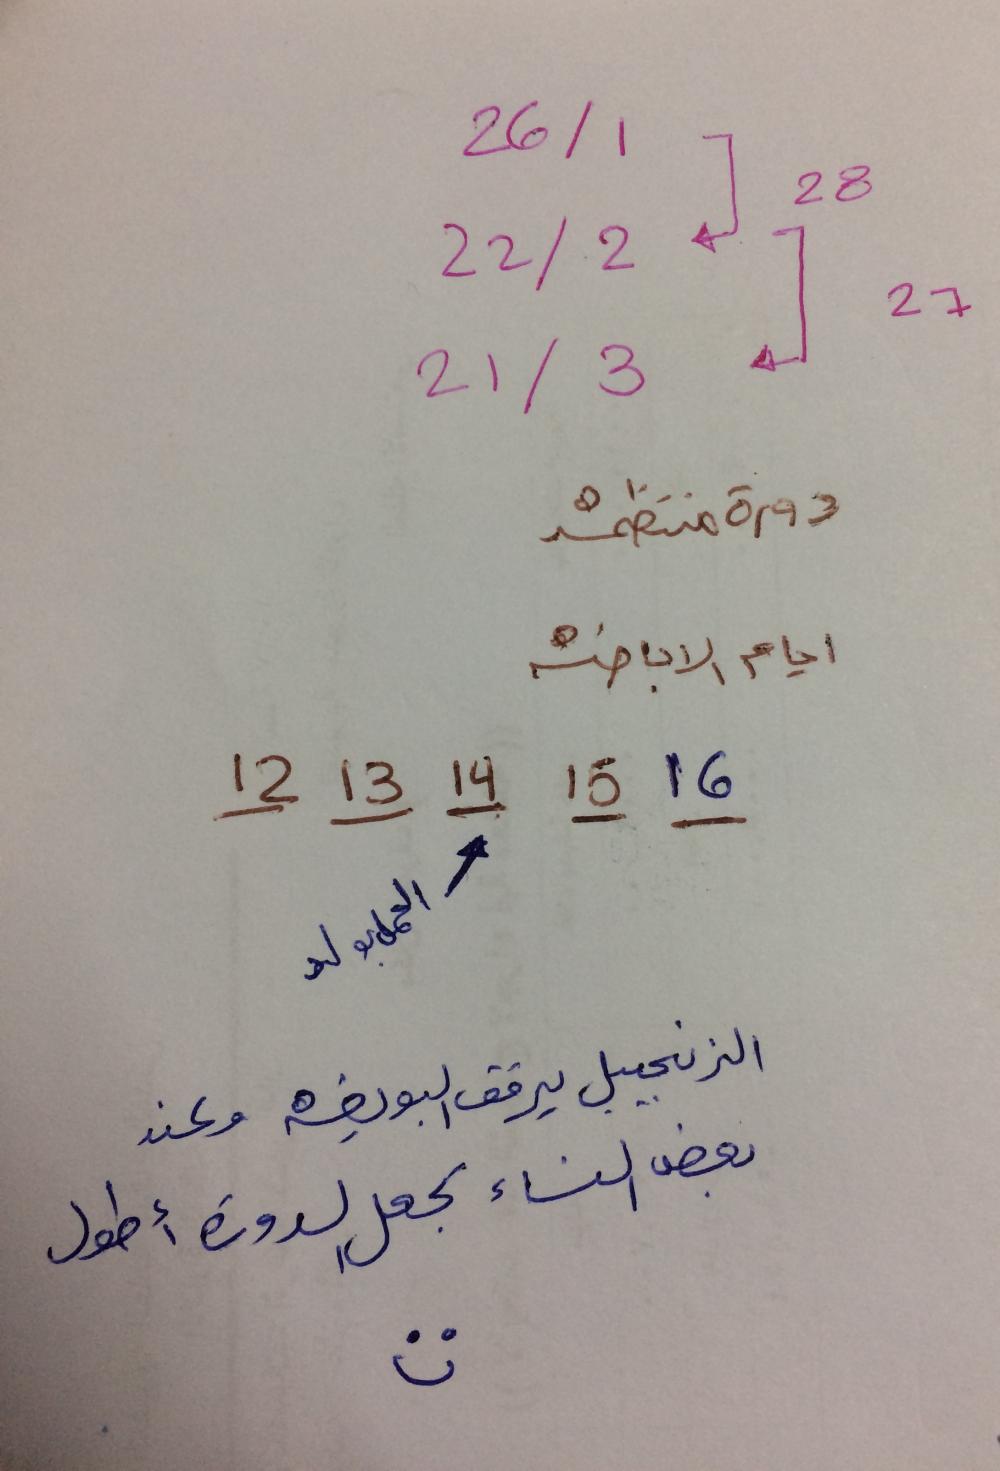 26/1
28
22/2
27
21/3
دورة منتظمة
ايام الاباضة
12 13 14 15 16
الزنجبيل يرقق البويضة وعند
بعض النساء يجعل الدورة أطول